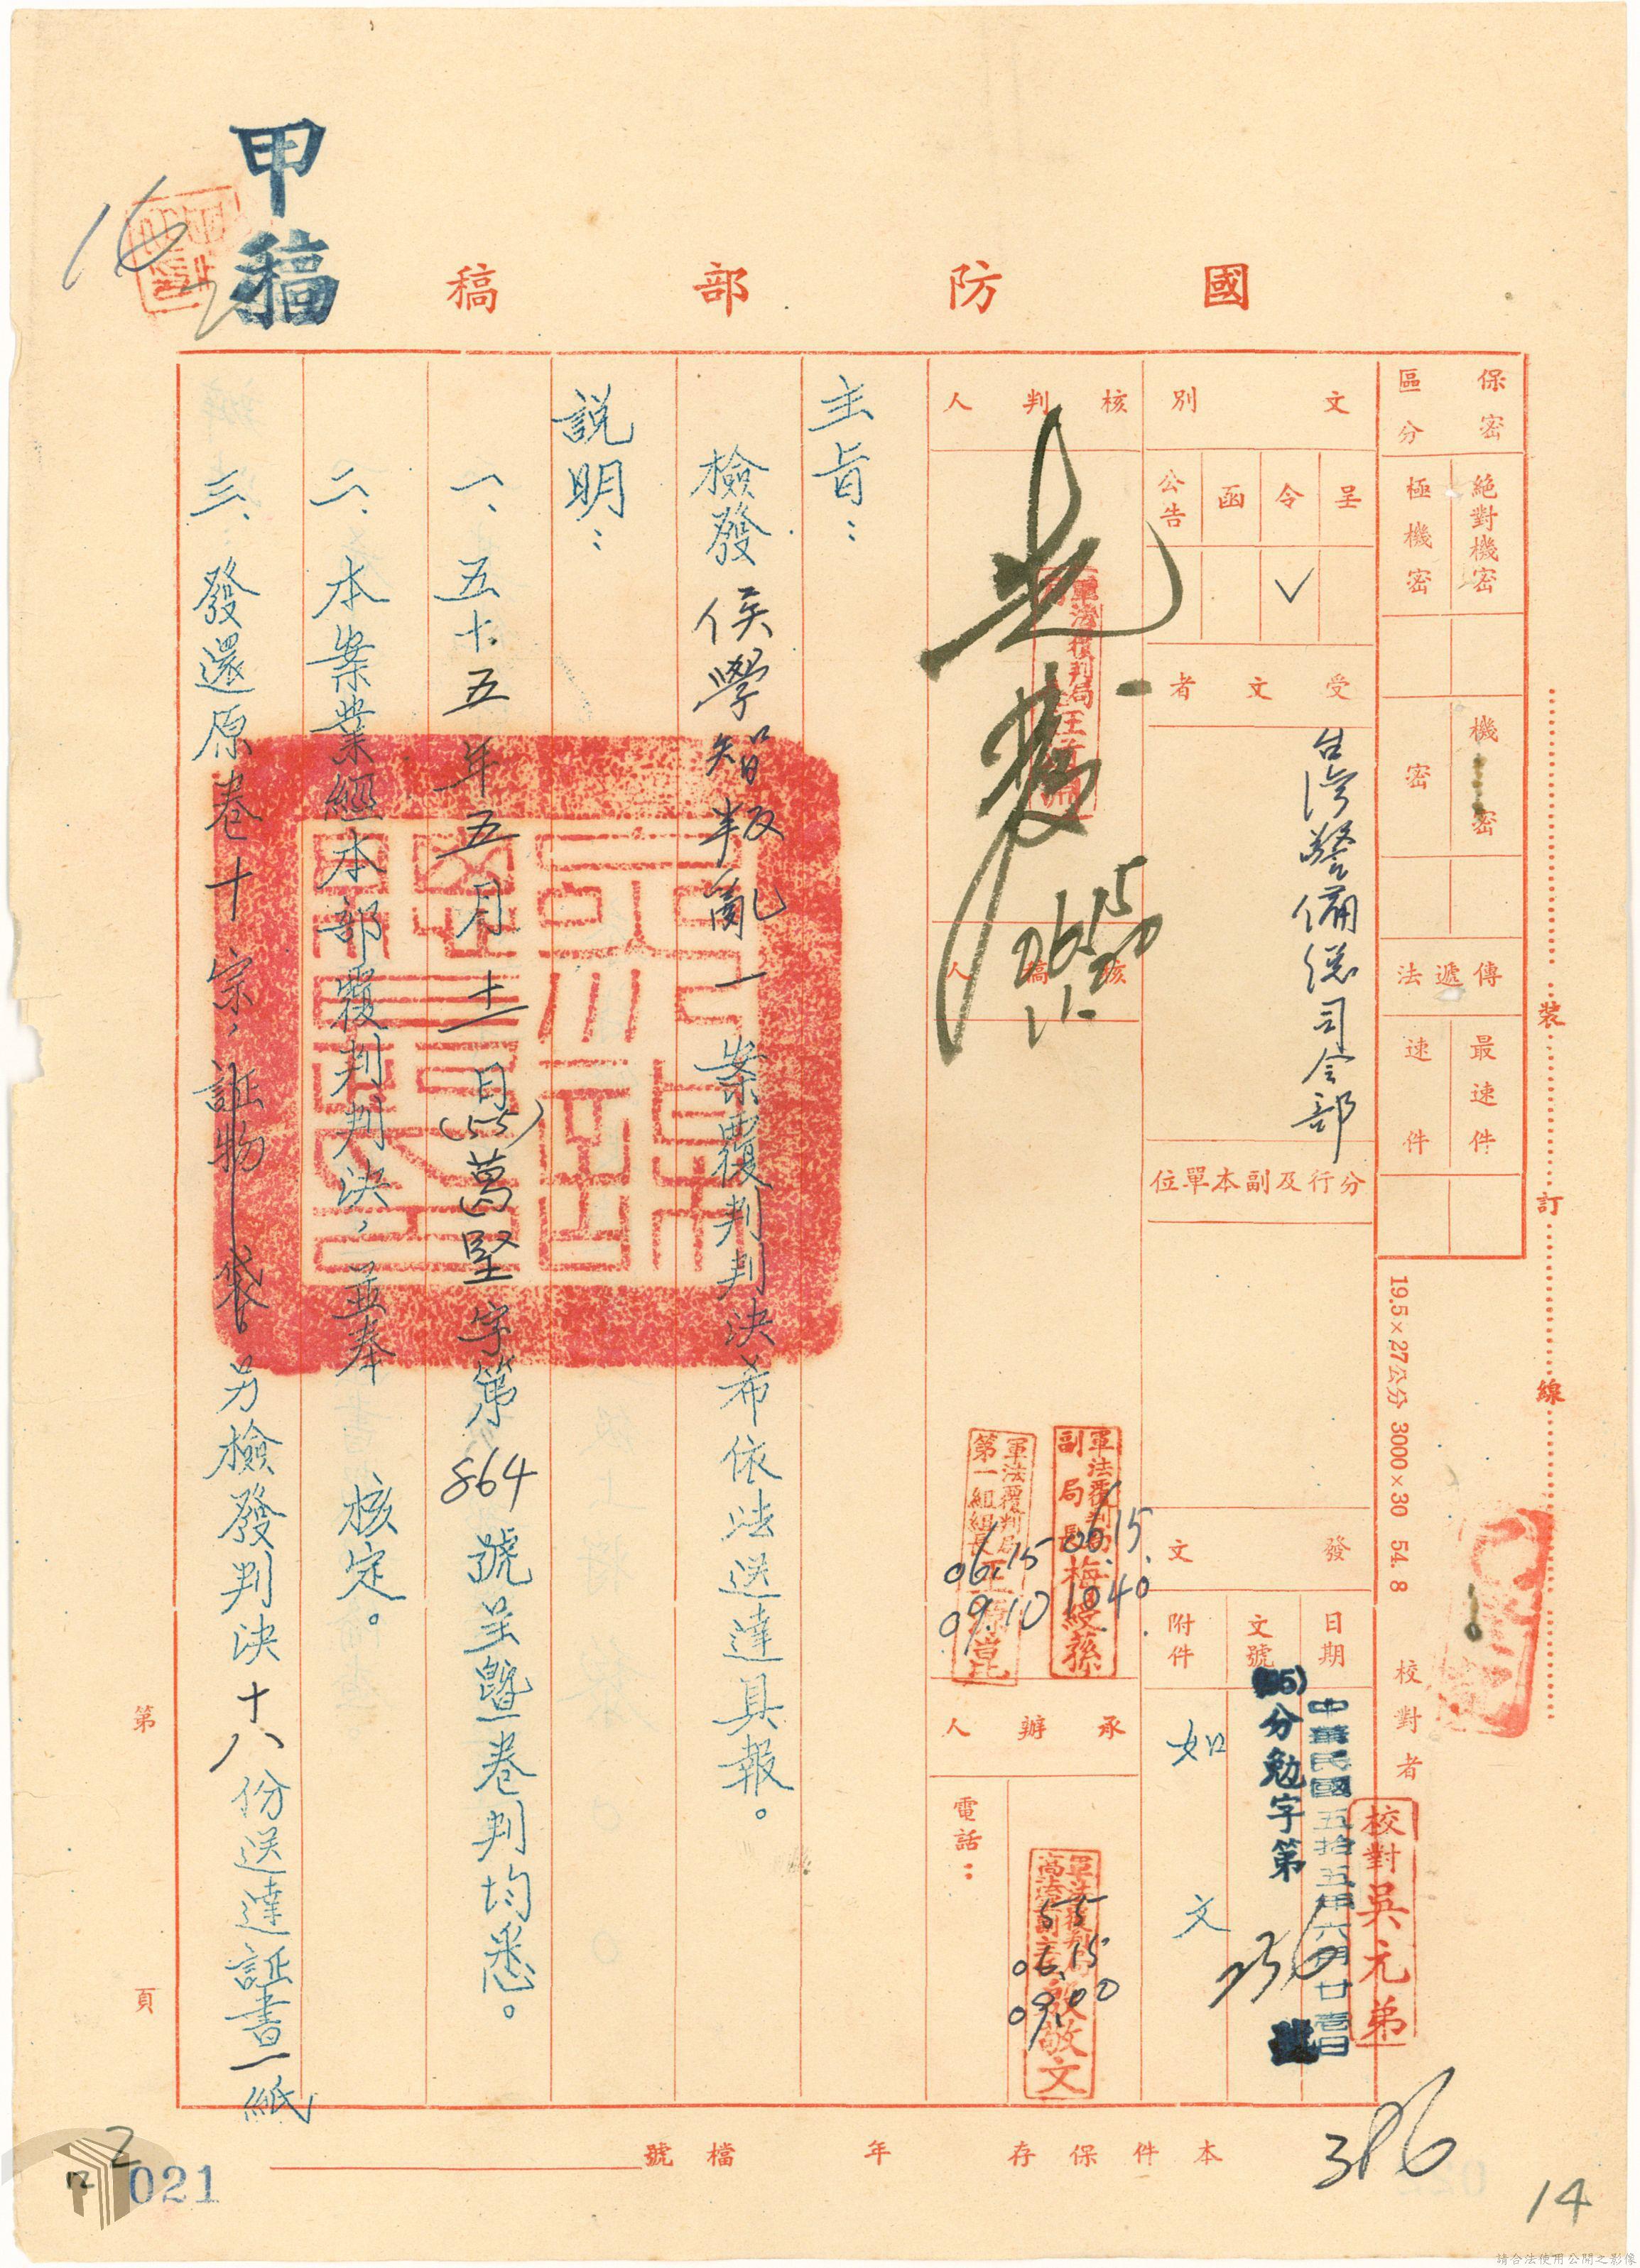 甲稿
國防部稿
保密區分
絕對機密
極機密
機密
密
傳遞法
最速件
速件
文別
呈
令
函
公告
✓
受文者
台灣警備總司令部
分行及副本單位
發文
日期
中華民國五拾五年六月廿壹日
文號
(55)分勉字第
號
附件
如文
核判人
核稿人
軍法覆判局
副局長梅綬蓀
06.15.
1040
軍法覆判局
第一組組長
06.15
09.10
承辦人
電話：
殷敬文
55
06.15
09.00
校對者
校對吳元弟
19.5×27公分 3000×30 54.8
裝訂線
主旨：
檢發侯學智叛亂一案覆判判決希依法送達具報。
說明：
一、五十五年五月十二日(55)萬堅字第864號呈暨卷判均悉。
二、本案業經本部覆判判決，並奉 核定。
三、發還原卷十宗，證物一袋。另檢發判決十八份送達証書一紙
第頁
本件保存年檔號
396
14
021
請合法使用公開之影像